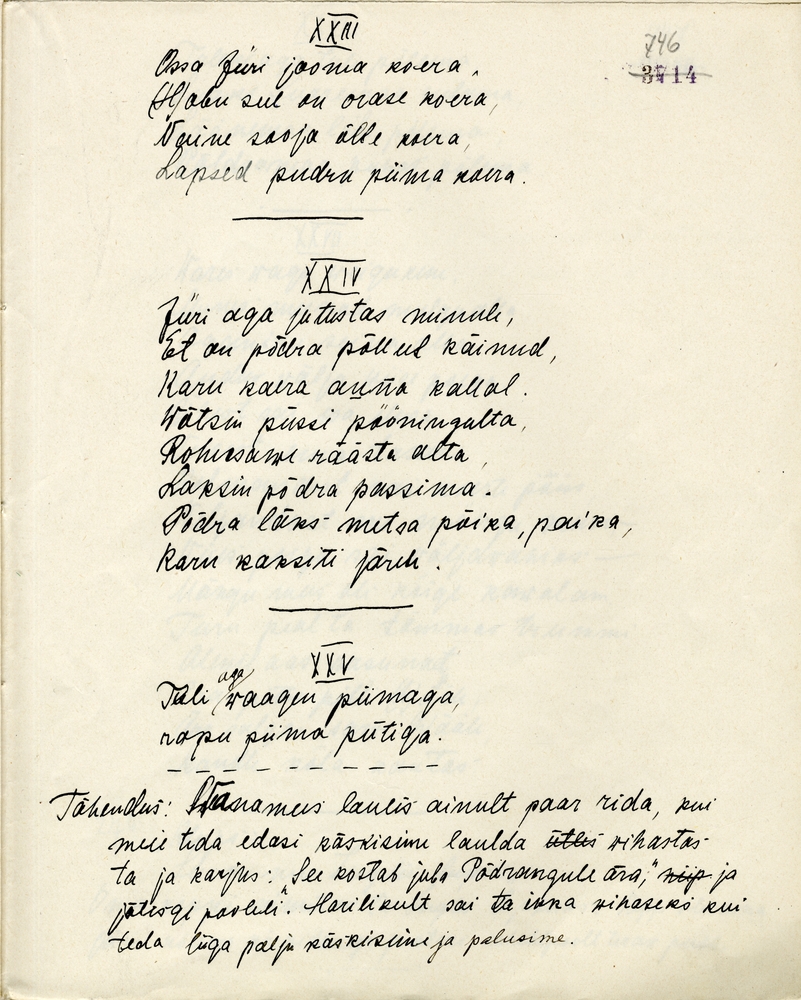 XXIII
746
3714
Ossa Jüri jooma koera,
(H)obu sul on orase koera,
Naine sooja õlle koera,
Lapsed pudru piima koera.
XXIV
Jüri aga jutustas minule,
Et on põdra põllul käinud,
Karu kaera auna kallal.
Wõtsin püssi pööningulta,
Rohusawe räästa alta,
Laksin põdra passima.
Põdra läks metsa põika, paika,
Karu kaksiti järele.
XXV
Tuli aga waagen piimaga,
ropu piima pütiga.
Tähendus: Wanamees laulis ainult paar rida, kui
meie teda edasi käskisime laulda ütles wihastas-
ta ja karjus: "See kostab juba Põdrangule ära," niip ja
jätisgi pooleli". Harilikult sai ta ikka wihaseks kui
teda liiga palju käskisime ja palusime.